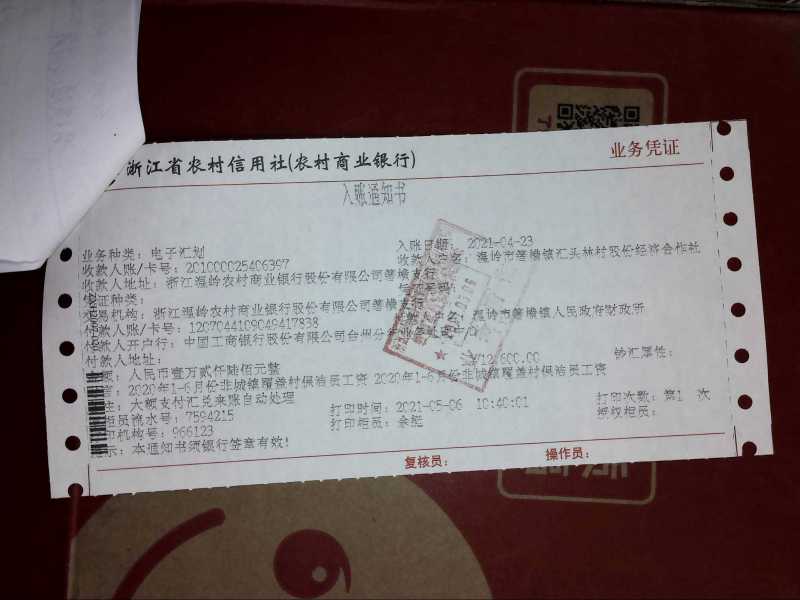 浙江省农村信用社(农村商业银行)
业务凭证
入账通知书
业务种类：电子汇划 入账日期：2021-04-23
收款人账/卡号：201000025406397 收款人户名：温岭市箬横镇汇头林村股份经济合作社
收款人地址：浙江温岭农村商业银行股份有限公司箬横支行
凭证种类：
交易机构：浙江温岭农村商业银行股份有限公司箬横支行 温岭市箬横镇人民政府财政所
付款人账/卡号：1207044109049417838
付款人开户行：中国工商银行股份有限公司台州分行
付款人地址：
人民币壹万贰仟陆佰元整 ¥12,600.00 钞汇属性：
2020年1-6月份非城镇覆盖村保洁员工资 2020年1-6月份非城镇覆盖村保洁员工资
大额支付汇兑来账自动处理 打印次数：第1 次
柜员流水号：7594215 打印时间：2021-05-06 10:40:01 授权柜员：
印机构号：966123 打印柜员：余挺
示：本通知书须银行签章有效！
复核员： 操作员：